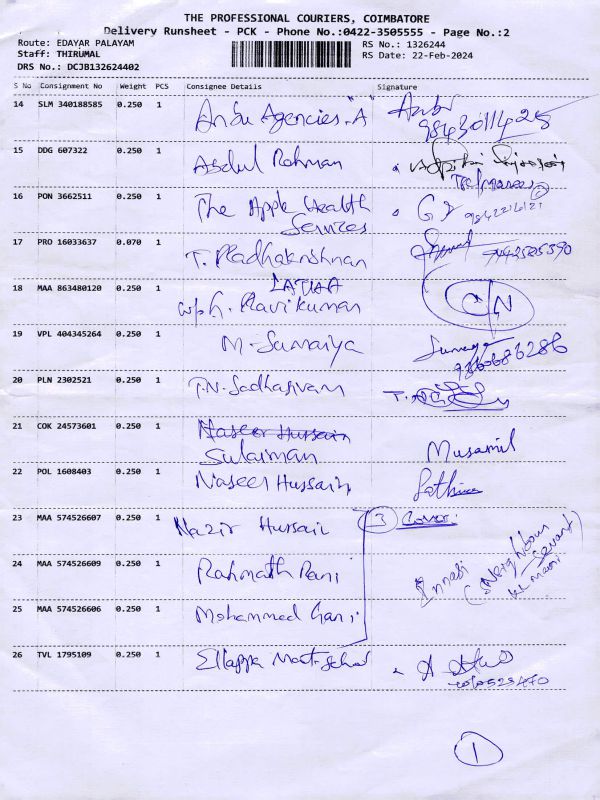 THE PROFESSIONAL COURIERS, COIMBATORE
Delivery Runsheet - PCK - Phone No.:0422-3505555 - Page No.:2
Route: EDAYAR PALAYAM
Staff: THIRUMAL
DRS No.: DCJB132624402
RS No.: 1326244
RS Date: 22-Feb-2024
S No Consignment No Weight PCS Consignee Details Signature
14 SLM 340188585 0.250 1 Anbu Agencies "A" Anbu
9843011425
15 DDG 607322 0.250 1 Abdul Rahman
16 PON 3662511 0.250 1 The Apple Health
Services
17 PRO 16033637 0.070 1 T. Radhakrishnan
18 MAA 863480120 0.250 1 LATHA
w/o G. Ravikumar
19 VPL 404345264 0.250 1 M. Sumaiya Sumaya
20 PLN 2302521 0.250 1 T.N. Sadhasivam
21 COK 24573601 0.250 1 Naseer Hussain
Sulaiman Musamil
22 POL 1608403 0.250 1 Naseer Hussain Fathima
23 MAA 574526607 0.250 1 Nazir Hussain 3 Cover.
24 MAA 574526609 0.250 1 Rahmath Rani
(Neighbour
Servant
25 MAA 574526606 0.250 1 Mohammed Gani
26 TVL 1795109 0.250 1 Ellappa
1